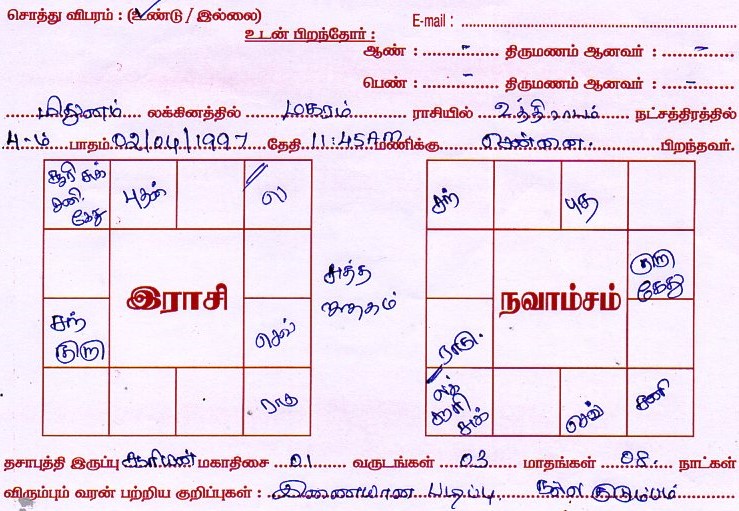 சொத்து விபரம் : (உண்டு / இல்லை)
E-mail :
உடன் பிறந்தோர் :
ஆண் : - திருமணம் ஆனவர் : -
பெண் : - திருமணம் ஆனவர் : -
மிதுனம் லக்கினத்தில் மகரம் ராசியில் உத்திராடம் நட்சத்திரத்தில்
4-ம் பாதம் 02/04/1997 தேதி 11:45AM மணிக்கு சென்னை. பிறந்தவர்.
சூரி சுக் புதன் ல
சனி.
கேது
இராசி
சுத்த
ஜாதகம்
சந்
குரு
செவ்
ராகு
சந் புத
நவாம்சம்
குரு
கேது
ராகு.
லக்
சூரி
சுக்
செவ் சனி
தசாபுத்தி இருப்பு சூரியன் மகாதிசை 01 வருடங்கள் 03 மாதங்கள் 08. நாட்கள்
விரும்பும் வரன் பற்றிய குறிப்புகள் : இணையான படிப்பு நல்ல குடும்பம்